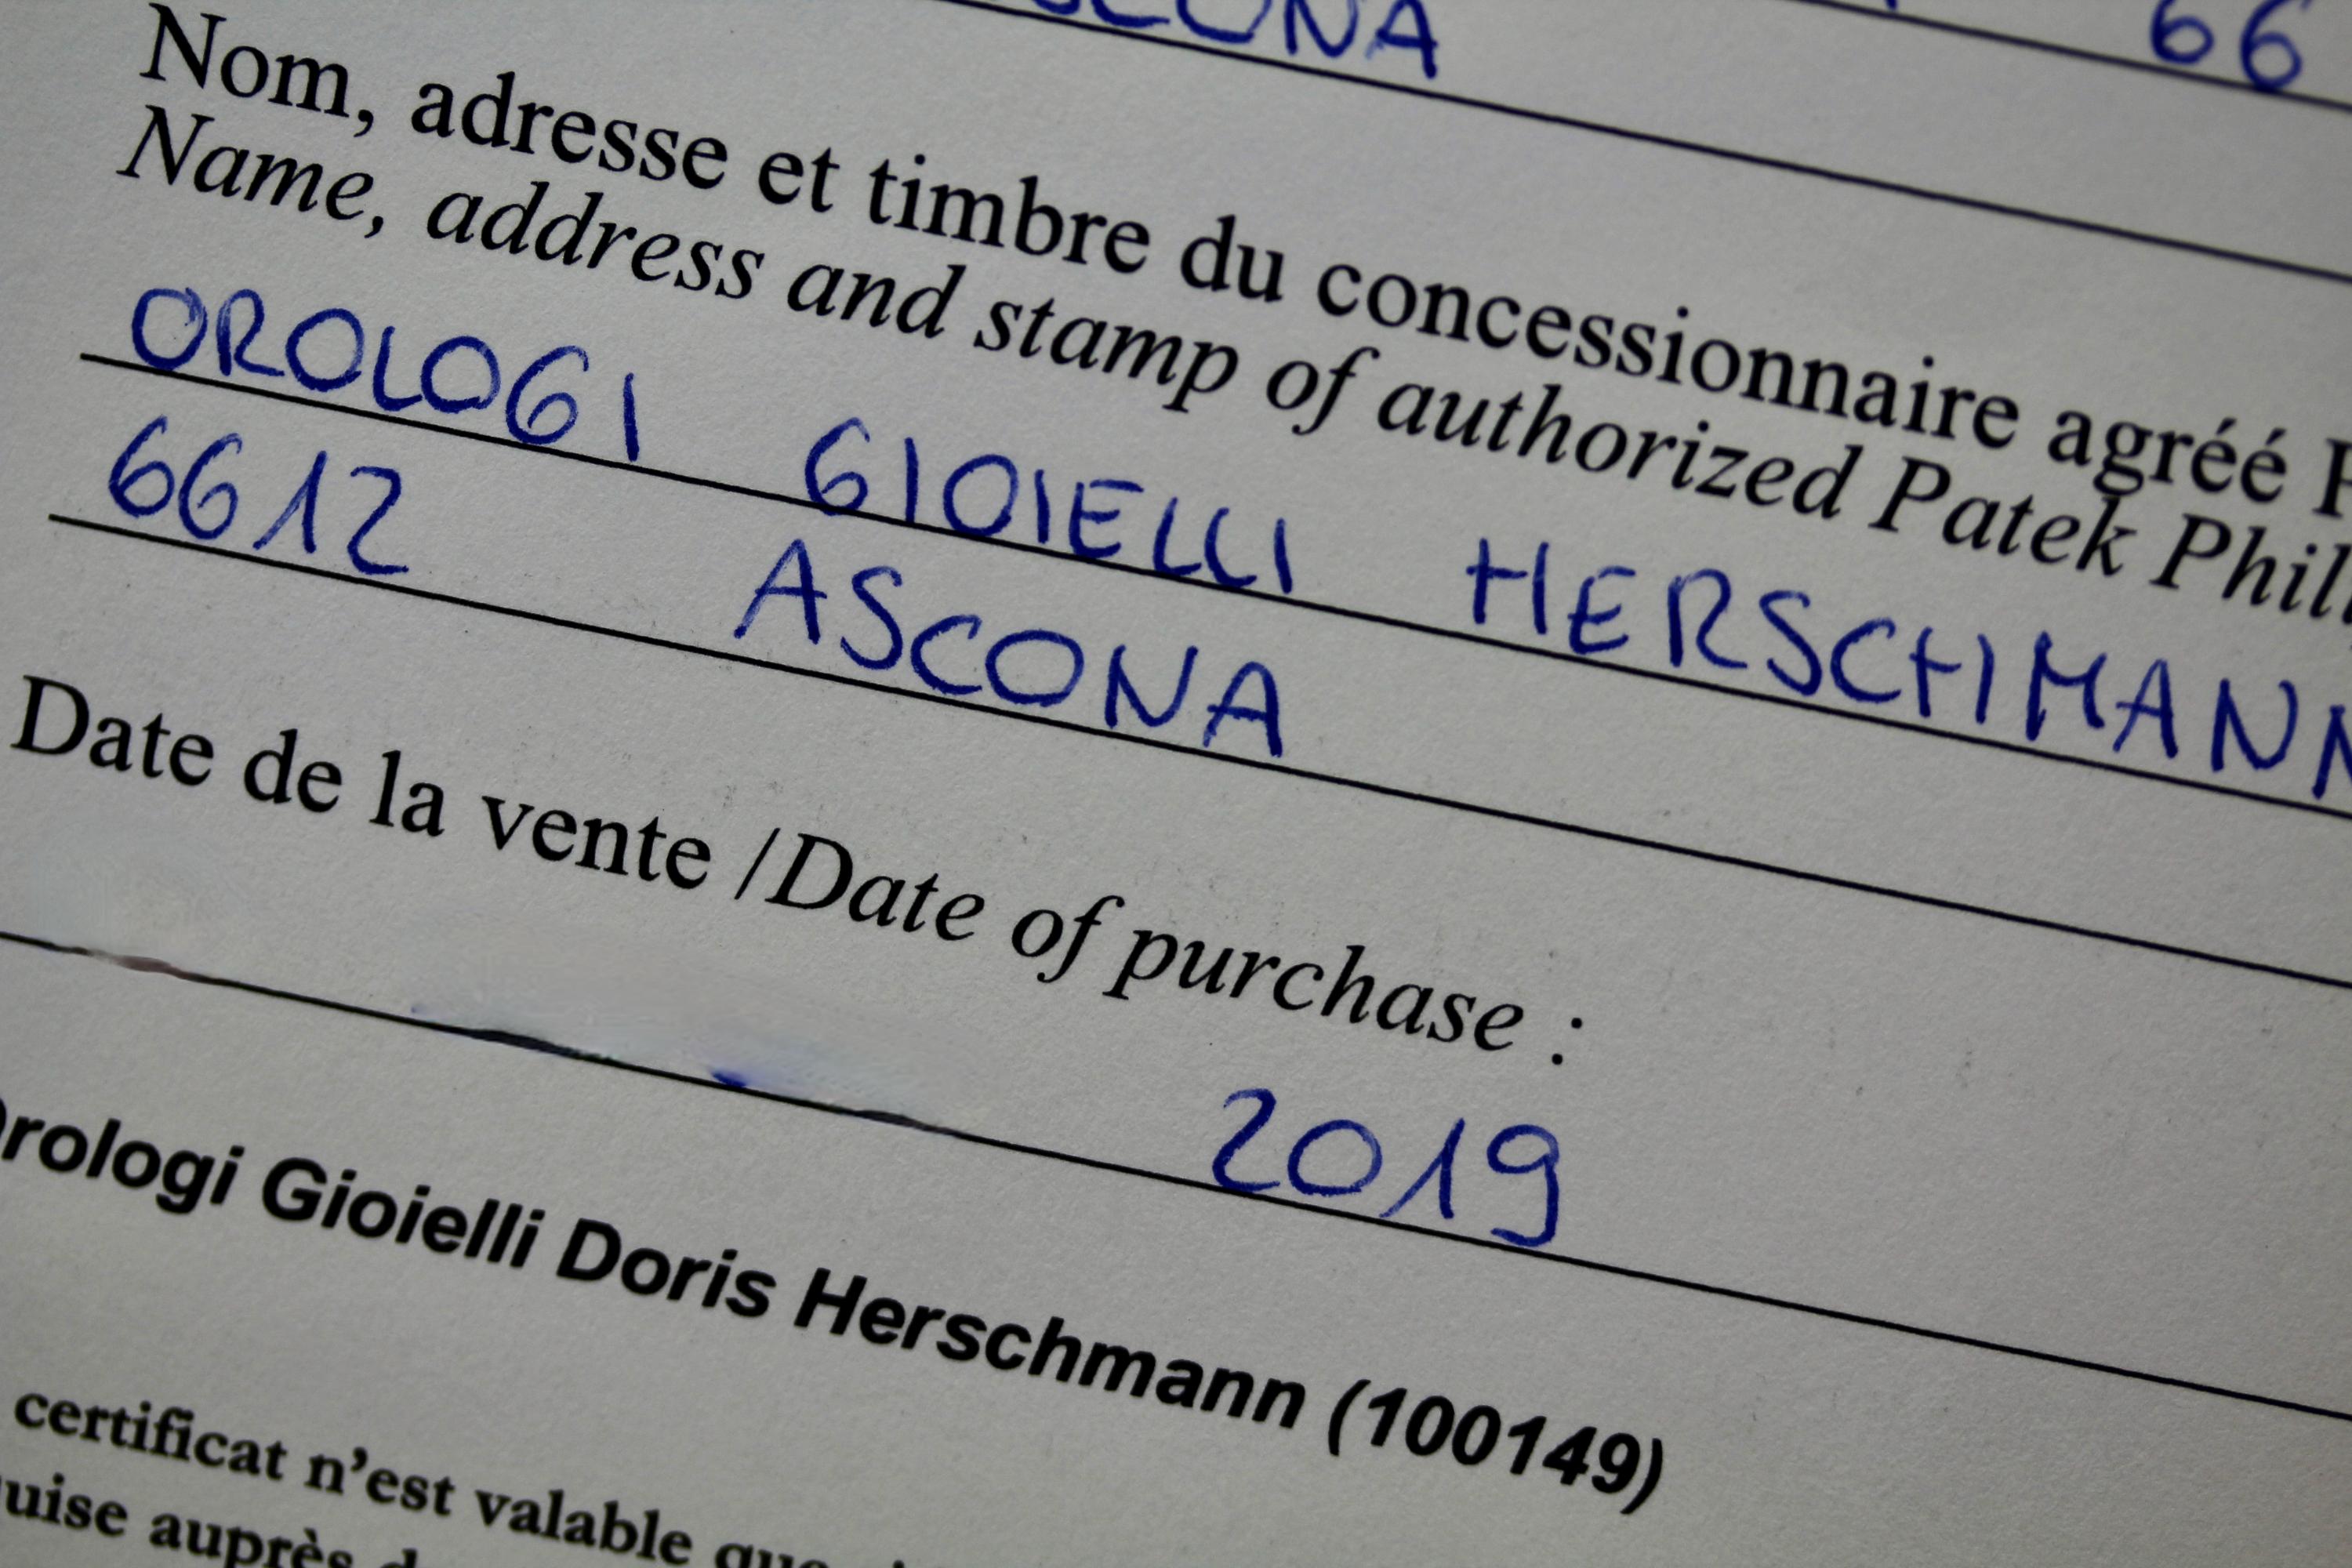 66
Nom, adresse et timbre du concessionnaire agréé
Name, address and stamp of authorized Patek
OROLOGI GIOIELLI HERSCHMANN
6612 ASCONA
Date de la vente / Date of purchase :
2019
Gioielli Doris Herschmann (100149)
certificat n'est valable
auprès